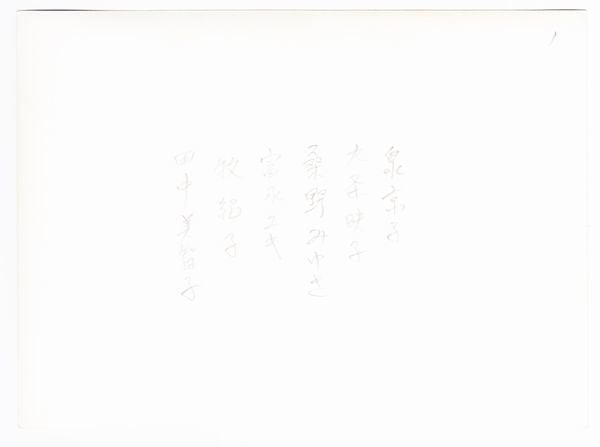 泉京子
大条映子
桑野みゆき
富永ユキ
牧紀子
田中美智子